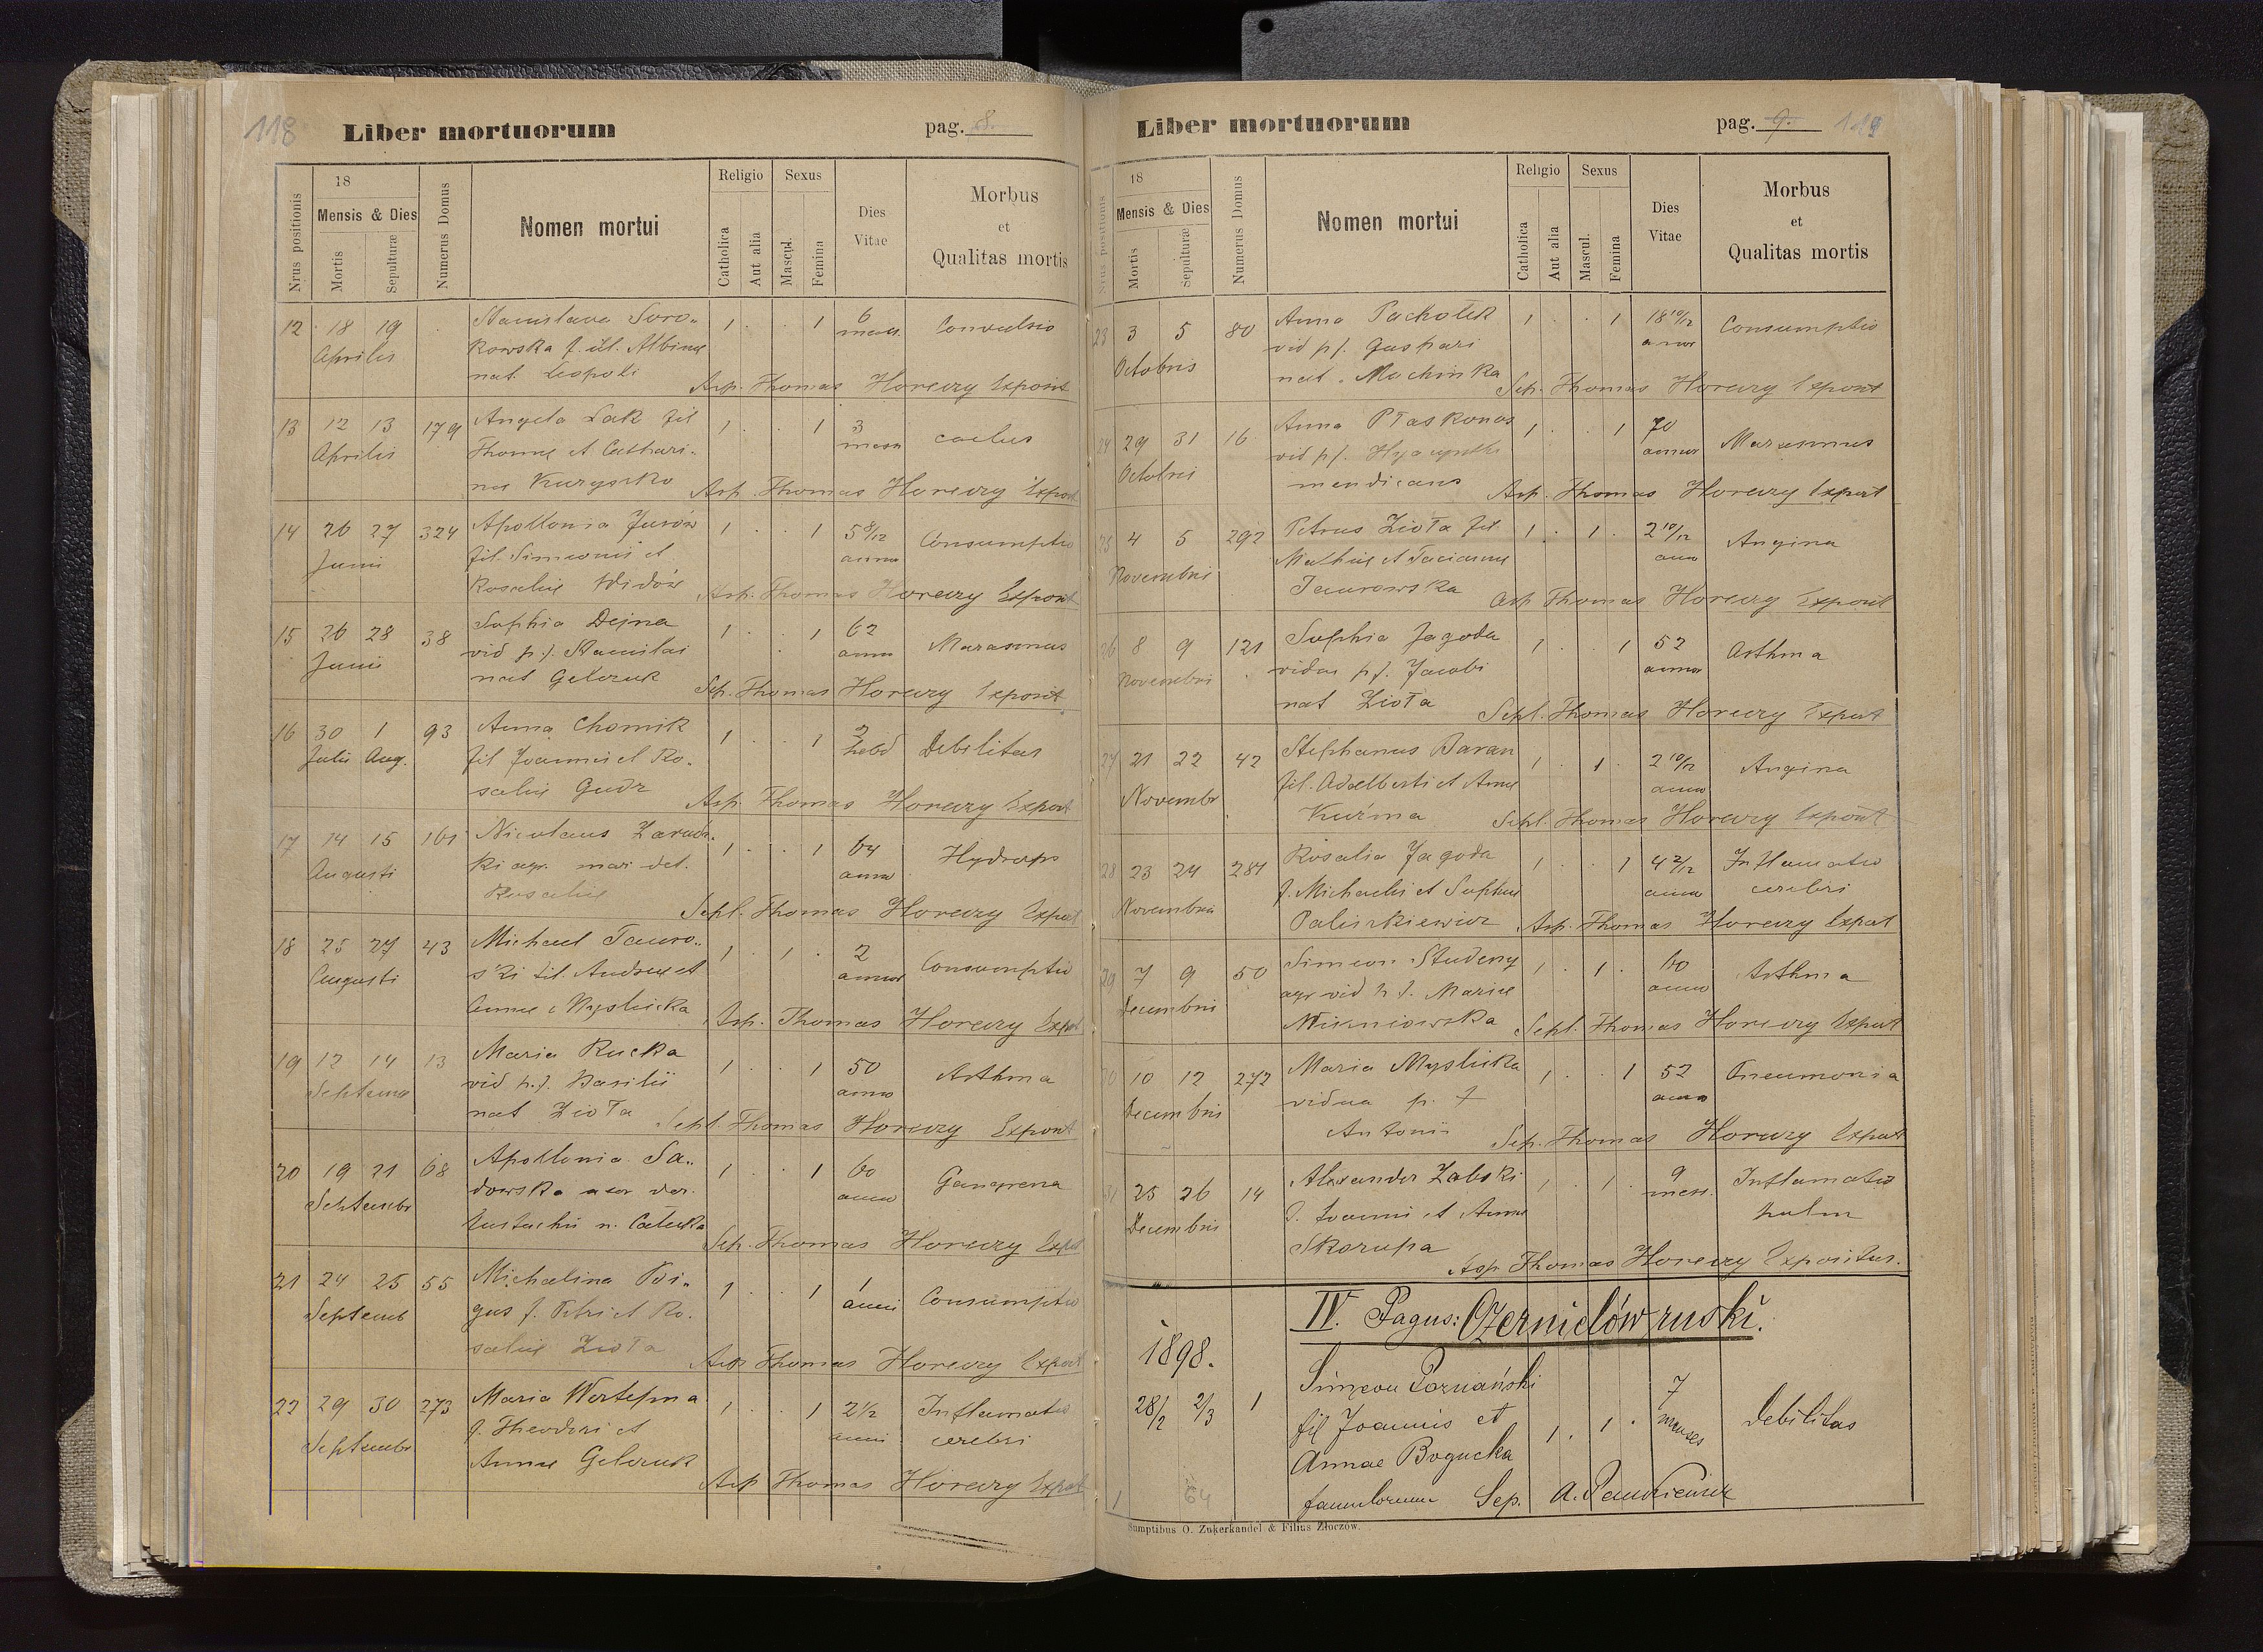 118
Liber mortuorum
pag. 8.
Nrus positionis
18
Mensis & Dies
Mortis
Sepulturæ
Numerus Domus
Nomen mortui
Religio
Catholica
Aut alia
Sexus
Mascul.
Femina
Dies
Vitae
Morbus
et
Qualitas mortis
12 18 19 Stanislava Soro- 1 1 6 Convulsio
Aprilis kowska f. ill. Albinae mens.
nat. Leopoli Asp. Thomas Horeczy Exposit
13 12 13 179 Angela Sak fil 1 1 3
Aprilis Thomae et Cathari-
nae Asp. Thomas Horeczy Exposit
14 26 27 324 Apollonia Jurów 1 1 5 8/12 Consumptio
Junii fil. Simeonis et annor
Rosaliae Widów Asp. Thomas Horeczy Exposit
15 26 28 38 Sophia Dejna 1 1 62 Marasmus
Junii vid p. f. Stanislai annor
nat Gelczuk Sep. Thomas Horeczy Exposit
16 30 1 93 Anna Chomik 1 1 2 Debilitas
Julii Aug. fil Joannis et Ro- hebd
saliae Gudz Asp. Thomas Horeczy Exposit
17 14 15 161 Nicolaus Zarudz- 1 1 64 Hydrops
Augusti ki agr. mar. del. annor
Rosaliae Sepl. Thomas Horeczy Exposit
18 25 27 43 Michael Tauro- 1 1 2 Consumptio
Augusti s'ki fil. Andreae et annor
Annae Myslicka Asp. Thomas Horeczy Exposit
19 12 14 13 Maria Rucka 1 1 50 Asthma
Septemb vid p. f. Basilii annor
nat Zioła Sepl. Thomas Horeczy Exposit
20 19 21 68 Apollonia Sa- 1 1 60 Gangrena
Septembr dowska uxor der. annor
Eustachii n. Sep. Thomas Horeczy Expos
21 24 25 55 Michalina Poi- 1 1 1 Consumptio
Septemb gus f. Petri et Ro- anni
saliae Zioła Asp Thomas Horeczy Exposit
22 29 30 273 Maria Wertepna 1 1 2 1/2 Inflamatio
Septembr f. Theodori et anni cerebri
Annae Gelczuk Asp Thomas Horeczy Exposit
Liber mortuorum
pag. 9. 119
Nrus positionis
18
Mensis & Dies
Mortis
Sepulturæ
Numerus Domus
Nomen mortui
Religio
Catholica
Aut alia
Sexus
Mascul.
Femina
Dies
Vitae
Morbus
et
Qualitas mortis
23 3 5 80 Anna Pachołek 1 1 18 10/12 Consumptio
Octobris vid p f. Gaspari annor
nat. Machinka Sep. Thomas Horeczy Exposit
24 29 31 16 Anna Płaskonos 1 1 70 Marasmus
Octobris vid p f. Hyacynthi annor
mendicans Asp. Thomas Horeczy Exposit
25 4 5 292 Petrus Zioła fil 1 1 2 10/12 Angina
Novembris Mathiae et Tacianae
Taurowska Asp Thomas Horeczy Exposit
26 8 9 121 Sophia Jagoda 1 1 52 Asthma
Novembris vidua p f. Jacobi annor
nat Zioła Sepl. Thomas Horeczy Exposit
27 21 22 42 Stephanus Baran 1 1 2 10/12 Angina
Novembr fil. Adalberti et Annae annor
Kuźma Sepl. Thomas Horeczy Exposit
28 23 24 284 Rosalia Jagoda 1 1 4 2/12 Inflamatio
Novembris f. Michaelis et Sophiae annor cerebri
Paliszkiewicz Asp. Thomas Horeczy Exposit
29 7 9 50 Simeon Studeny 1 1 60 Asthma
Decembris agr vid p f. Mariae annor
Wiszniowska Sepl. Thomas Horeczy Exposit
30 10 12 272 Maria Myslicka 1 1 52 Pneumonia
Decembris vidua p. f annor
Antonii Sep. Thomas Horeczy Exposit
31 25 26 14 Alexander Zaloski 1 1 9 Inflamatio
Decembris f. Joannis et Annae mens. pulm
Skorupa Asp Thomas Horeczy Expositus.
IV. Pagus: Czernielów ruski.
1898.
28/2 2/3 1 Simeon Poznański 7 Debilitas
fil Joannis et 1. 1. menses
Annae Bogucka
1 64 famulorum Sep. A.
Sumptibus O. Zukerkandel & Filius Złoczów.